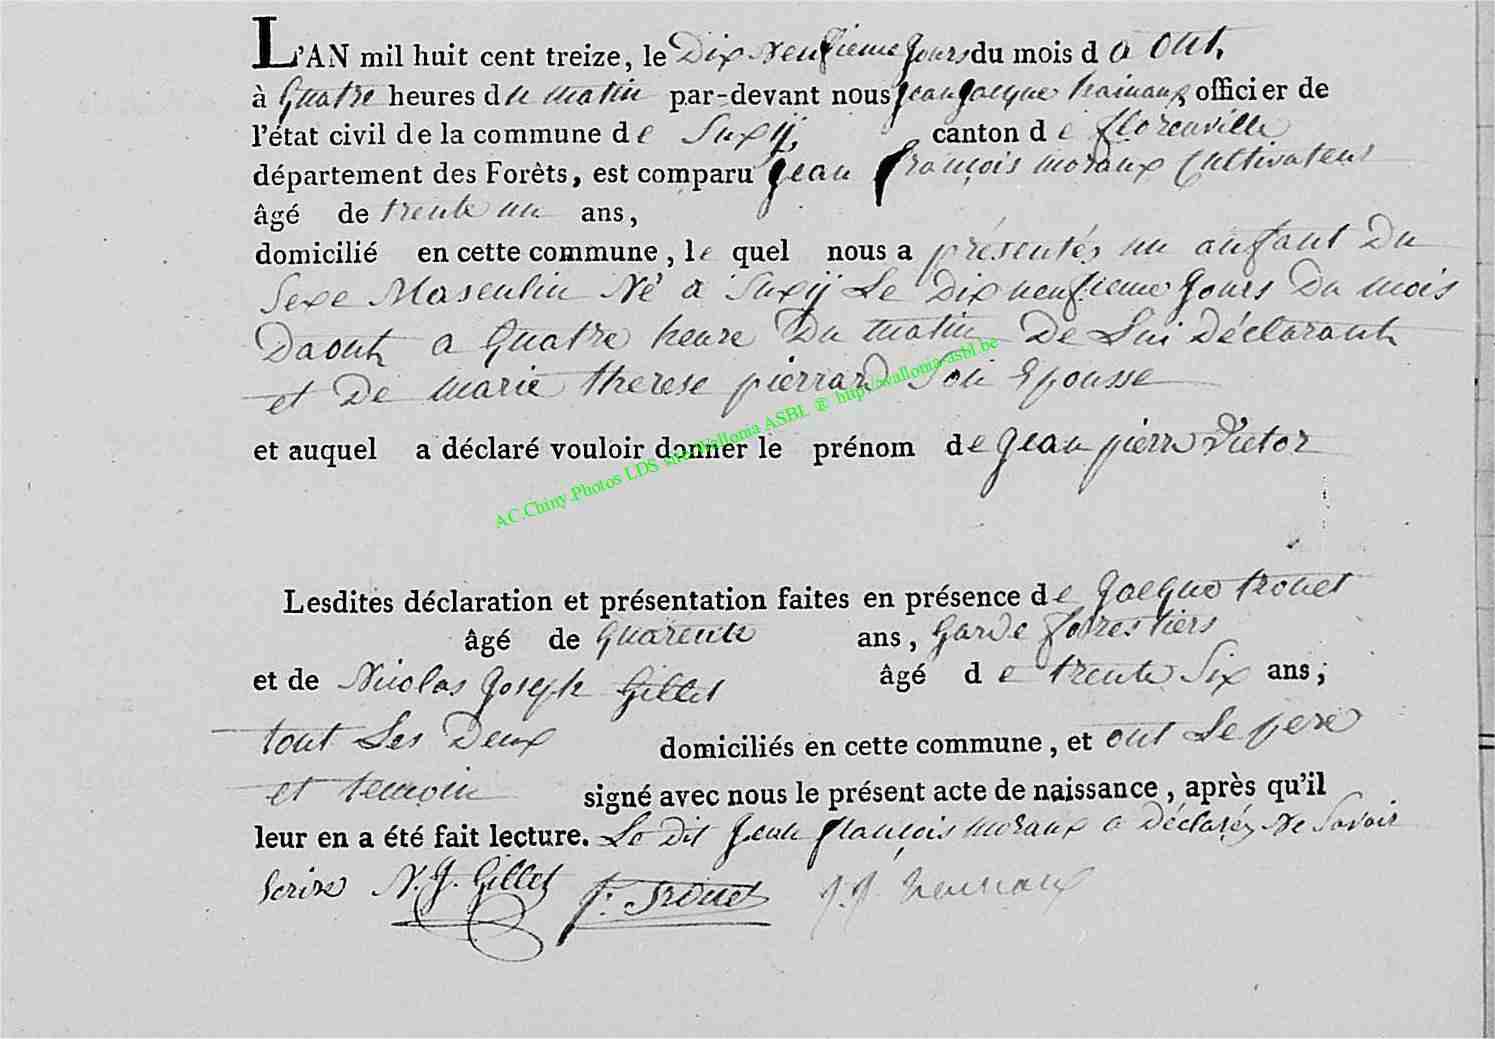 L'AN mil huit cent treize, le Dix neufieme Jours du mois d a Out,
à Quatre heures du matin par-devant nous Jean Jacque officier de
l'état civil de la commune de Suxÿ, canton de florenville
département des Forêts, est comparu Jean françois moraux Cultivateur
âgé de trente un ans,
domicilié en cette commune, le quel nous a présentéz un anfant Du
Sexe Masculin Né a Suxÿ Le Dix neufieme Jours Du mois
Daout a Quatre heure Du matin De Lui Déclarant
et De marie therese pierrard Son Epousse
et auquel a déclaré vouloir donner le prénom de Jean pierre Victor
AC.Chiny.Photos LDS via Wallonia ASBL ® http://wallonia-asbl.be
Lesdites déclaration et présentation faites en présence de Jacque trouet
âgé de quarente ans, Garde forrestiers
et de Nicolas Joseph Gillet âgé de trente Six ans;
tout Les Deux domiciliés en cette commune, et ont Le pere
et temoin signé avec nous le présent acte de naissance, après qu'il
leur en a été fait lecture. Le Dit Jean françois moraux a Déclaréz Ne Savoir
Scrire N. J. Gillet J: Trouet J. J.